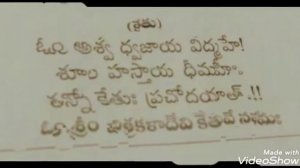 (కేతు)
ఓం అశ్వ ధ్వజాయ విద్మహే!
శూల హస్తాయ ధీమహి
తన్నో కేతుః ప్రచోదయాత్.!!
ఓం శ్రీం
కేతవే నమః
Made with
VideoShow